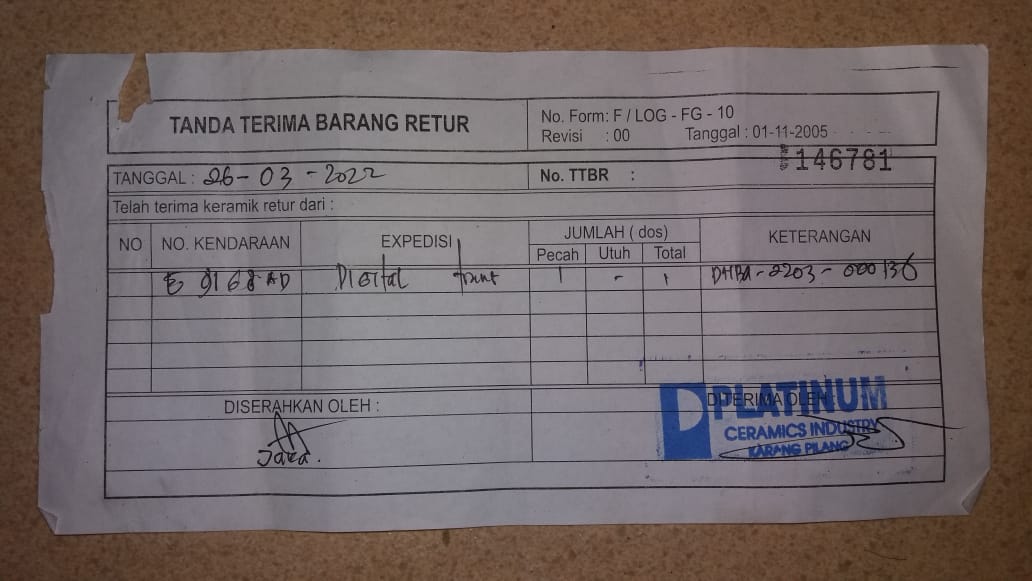 TANDA TERIMA BARANG RETUR
No. Form: F / LOG - FG - 10
Revisi : 00 Tanggal : 01-11-2005
146781
TANGGAL : 26-03-2022 No. TTBR :
Telah terima keramik retur dari :
NO NO. KENDARAAN EXPEDISI JUMLAH ( dos) KETERANGAN
Pecah Utuh Total
E 9168 AD DIGITAL 1 - 1 DTTBA-2203-000136
DISERAHKAN OLEH : DITERIMA OLEH :
Jaka.
PLATINUM
CERAMICS INDUSTRY
KARANG PILANG